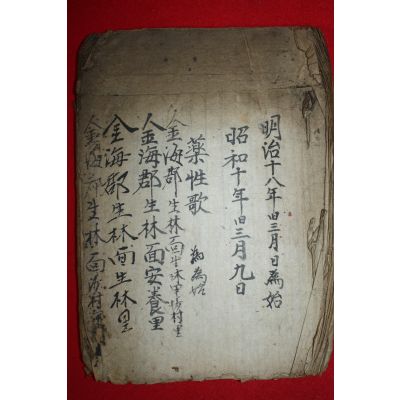 明治十八年旧三月日為始
昭和十年旧三月九日
薬性歌 為始
金海郡生林面生林里村里
金海郡生林面安養里
金海郡生林面生林里
金海郡生林面村